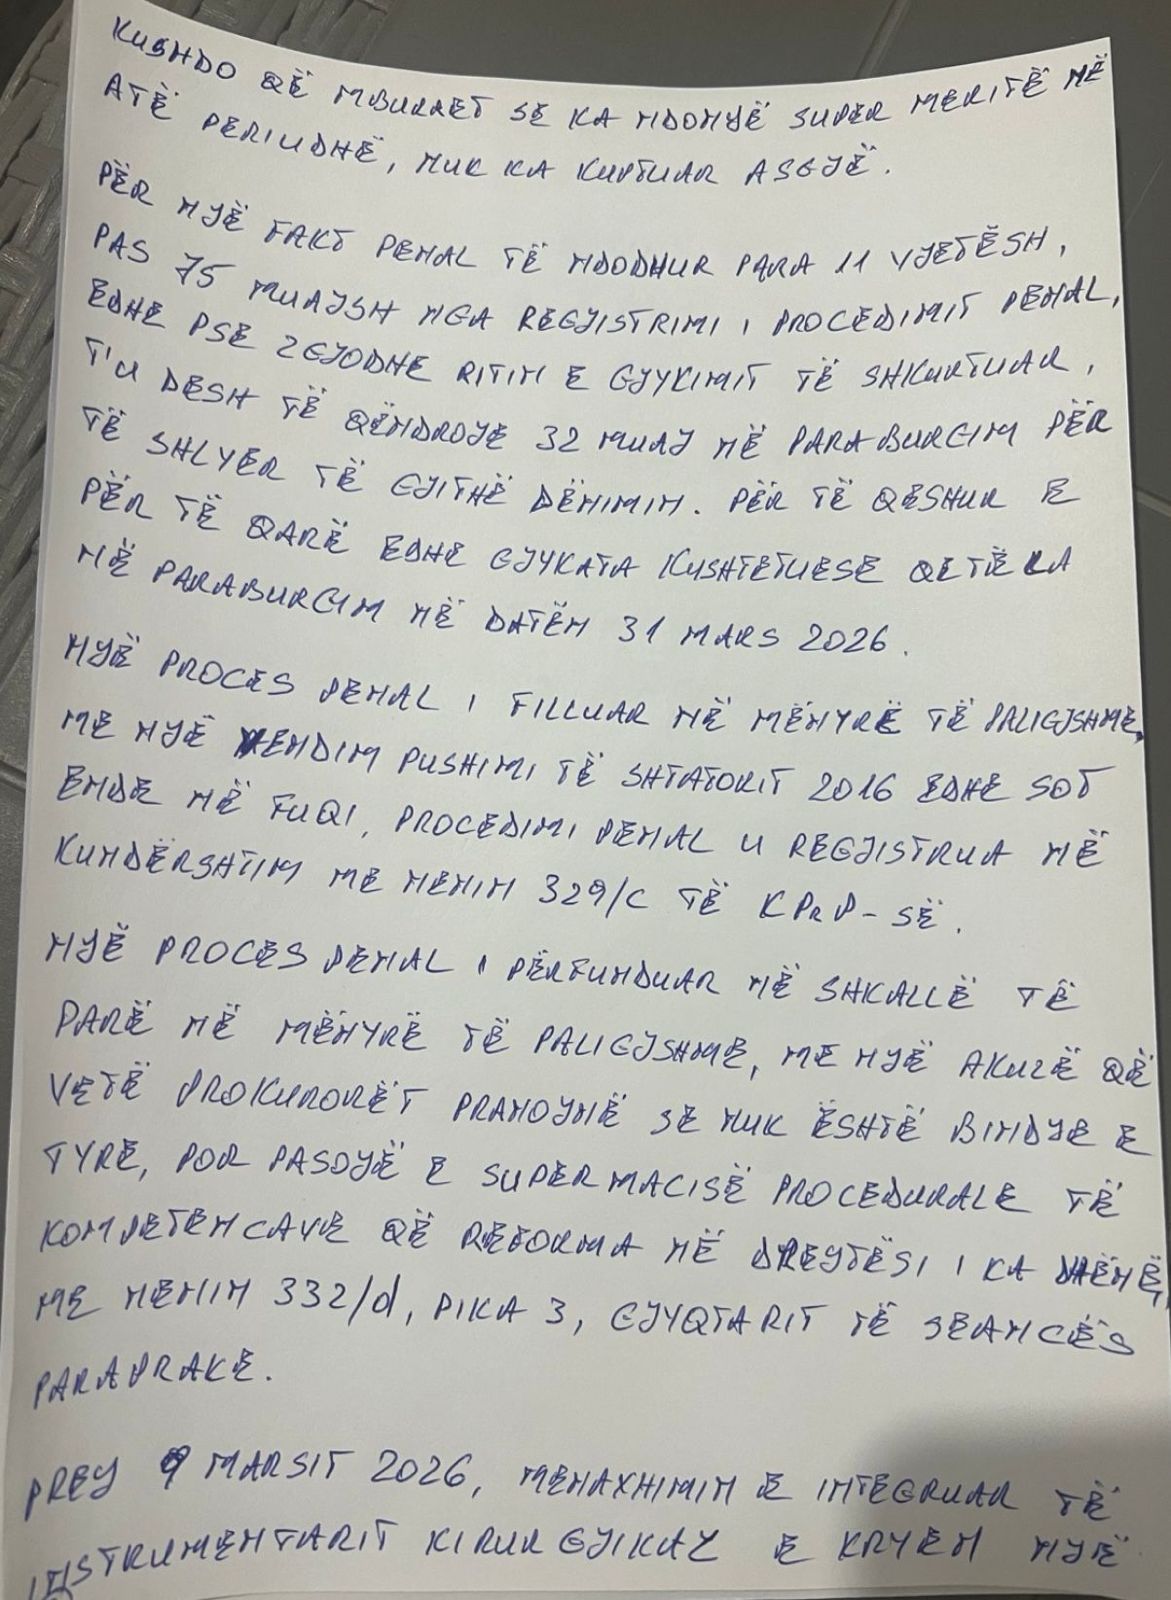 KUSHDO QË MBURRET SE KA NDONJË SUPER MERITË NË
ATË PERIUDHË, NUK KA KUPTUAR ASGJË.
PËR NJË FAKT PENAL TË NDODHUR PARA 11 VJETËSH,
PAS 75 MUAJSH NGA REGJISTRIMI I PROCEDIMIT PENAL,
EDHE PSE ZGJODHE RITIN E GJYKIMIT TË SHKURTUAR,
T'U DESH TË QËNDROJE 32 MUAJ NË PARABURGIM PËR
TË SHLYER TË GJITHË DËNIMIN. PËR TË QESHUR E
PËR TË QARË EDHE GJYKATA KUSHTETUESE QETË LA
NË PARABURGIM NË DATËN 31 MARS 2026.
NJË PROCES PENAL I FILLUAR NË MËNYRË TË PALIGJSHME,
ME NJË VENDIM PUSHIMI TË SHTATORIT 2016 EDHE SOT
ENDE NË FUQI, PROCEDIMI PENAL U REGJISTRUA NË
KUNDËRSHTIM ME NENIN 329/C TË KPRP-SË.
NJË PROCES PENAL I PËRFUNDUAR NË SHKALLË TË
PARË NË MËNYRË TË PALIGJSHME, ME NJË AKUZË QË
VETË PROKURORËT PRANOJNË SE NUK ËSHTË BINDJE E
TYRE, POR PASOJË E SUPERMACISË PROCEDURALE TË
KOMPETENCAVE QË REFORMA NË DREJTËSI I KA DHËNË,
ME NENIN 332/d, PIKA 3, GJYQTARIT TË SEANCËS
PARAPRAKE.
PREJ 9 MARSIT 2026, MENAXHIMIN E INTEGRUAR TË
INSTRUMENTARIT KIRURGJIKAL E KRYEN NJË